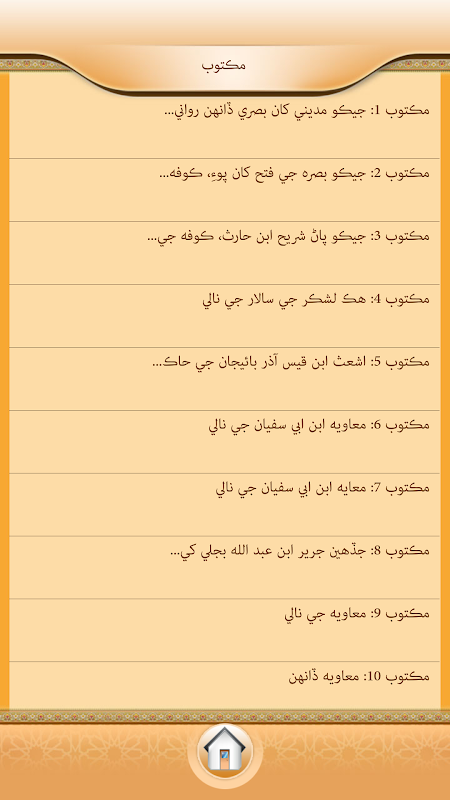 مڪتوب
مڪتوب 1: جيڪو مديني کان بصري ڏانهن رواني...
مڪتوب 2: جيڪو بصره جي فتح کان پوءِ، ڪوفه...
مڪتوب 3: جيڪو پاڻ شريح ابن حارث، ڪوفه جي...
مڪتوب 4: هڪ لشڪر جي سالار جي نالي
مڪتوب 5: اشعث ابن قيس آذر بائيجان جي حاڪ...
مڪتوب 6: معاويه ابن ابي سفيان جي نالي
مڪتوب 7: معايه ابن ابي سفيان جي نالي
مڪتوب 8: جڏهين جرير ابن عبد الله بجلي کي...
مڪتوب 9: معاويه جي نالي
مڪتوب 10: معاويه ڏانهن